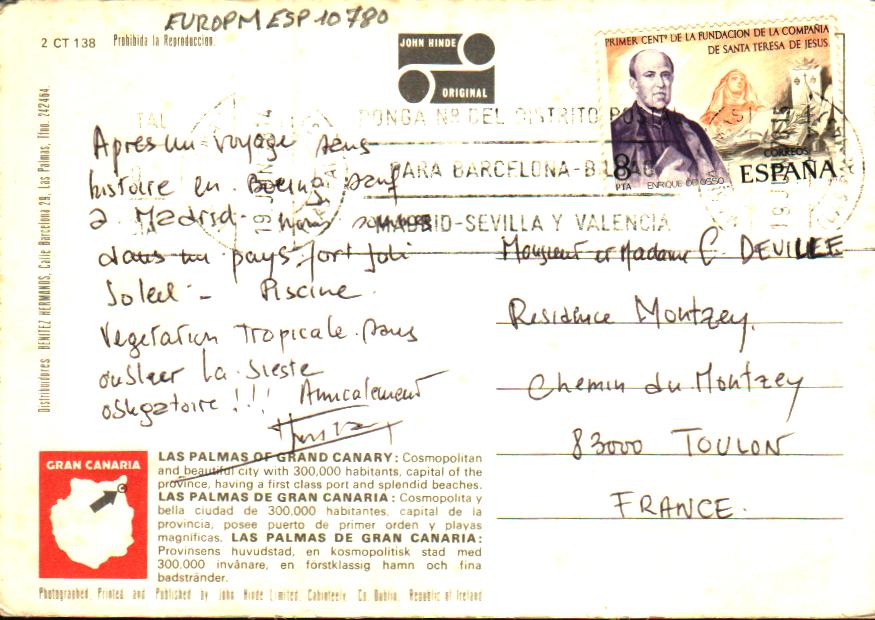 EUROPM ESP 10780
2 CT 138 Prohibida la Reproduccion.
JOHN HINDE
ORIGINAL
PRIMER CENTº DE LA FUNDACION DE LA COMPAÑIA
DE SANTA TERESA DE JESUS
8
PTA
ENRIQUE DE OSSO
CORREOS
ESPAÑA
PONGA Nº DEL DISTRITO POSTAL
PARA BARCELONA-BILBAO
MADRID-SEVILLA Y VALENCIA
Distribuidores BENITEZ HERMANOS, Calle Barcelona 29, Las Palmas, Tfno. 242464.
Apres un voyage sans
histoire en Boeing sauf
a Madrid - nous sommes
dans un pays fort joli
Soleil - Piscine.
Vegetation Tropicale. sans
oublier la sieste
obligatoire !!! Amicalement
Monsieur et Madame C. DEVILLE
Residence Montzey.
Chemin du Montzey
83000 TOULON
FRANCE.
GRAN CANARIA
LAS PALMAS OF GRAND CANARY: Cosmopolitan
and beautiful city with 300,000 habitants, capital of the
province, having a first class port and splendid beaches.
LAS PALMAS DE GRAN CANARIA: Cosmopolita y
bella ciudad de 300.000 habitantes, capital de la
provincia, posee puerto de primer orden y playas
magníficas. LAS PALMAS DE GRAN CANARIA:
Provinsens huvudstad, en kosmopolitisk stad med
300.000 invånare, en förstklassig hamn och fina
badstränder.
Photographed, Printed and Published by John Hinde Limited, Cabinteely, Co. Dublin, Republic of Ireland